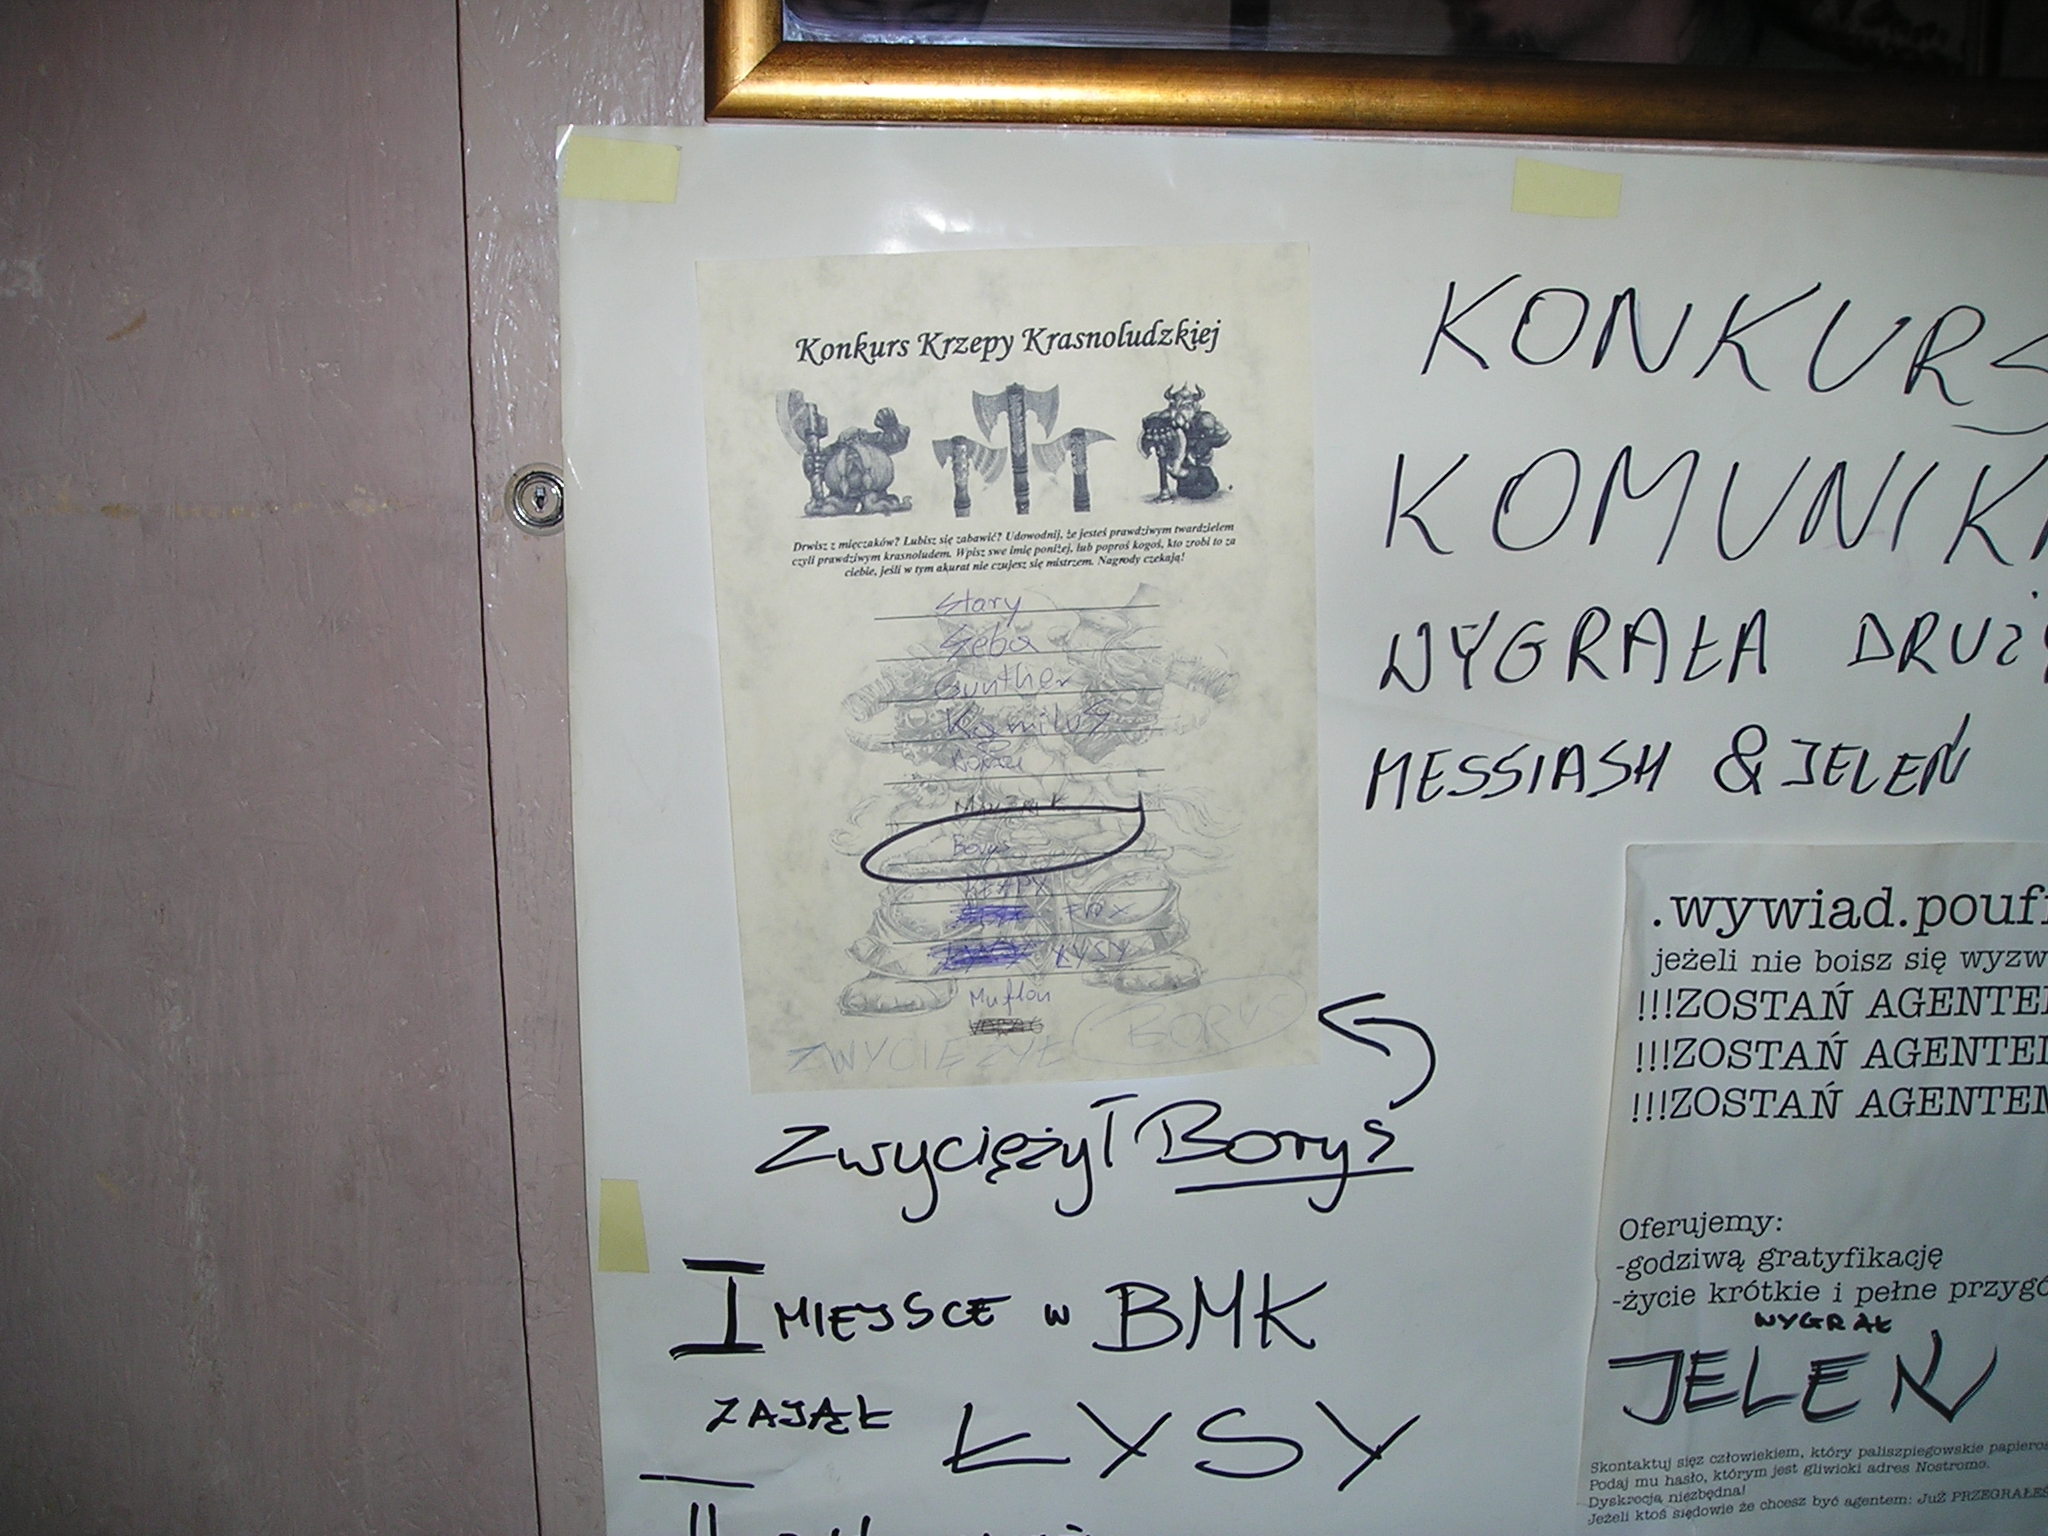 Konkurs Krzepy Krasnoludzkiej
Drwisz z mięczaków? Lubisz się zabawić? Udowodnij, że jesteś prawdziwym twardzielem
czyli prawdziwym krasnoludem. Wpisz swe imię poniżej, lub poproś kogoś, kto zrobi to za
ciebie, jeśli w tym akurat nie czujesz się mistrzem. Nagrody czekają!
Stary
Seba
Gunther
Kamilus
Borys
FOX
ŁYSY
Muflon
ZWYCIĘŻYŁ BORYS
Zwyciężył Borys
I MIEJSCE w BMK
ZAJĄŁ ŁYSY
II
KONKURS
KOMUNIK
WYGRAŁA DRUŻY
MESSIASH & JELEŃ
.wywiad.pouf
jeżeli nie boisz się wyzw
!!!ZOSTAŃ AGENTEM
!!!ZOSTAŃ AGENTEM
!!!ZOSTAŃ AGENTEM
Oferujemy:
-godziwą gratyfikację
-życie krótkie i pełne przygó
WYGRAŁ
JELEŃ
Skontaktuj sięz człowiekiem, który paliszpiegowskie papieros
Podaj mu hasło, którym jest gliwicki adres Nostromo.
Dyskrocja niezbędna!
Jeżeli ktoś siędowie że chcesz być agentem: JuŻ PRZEGRAŁEŚ